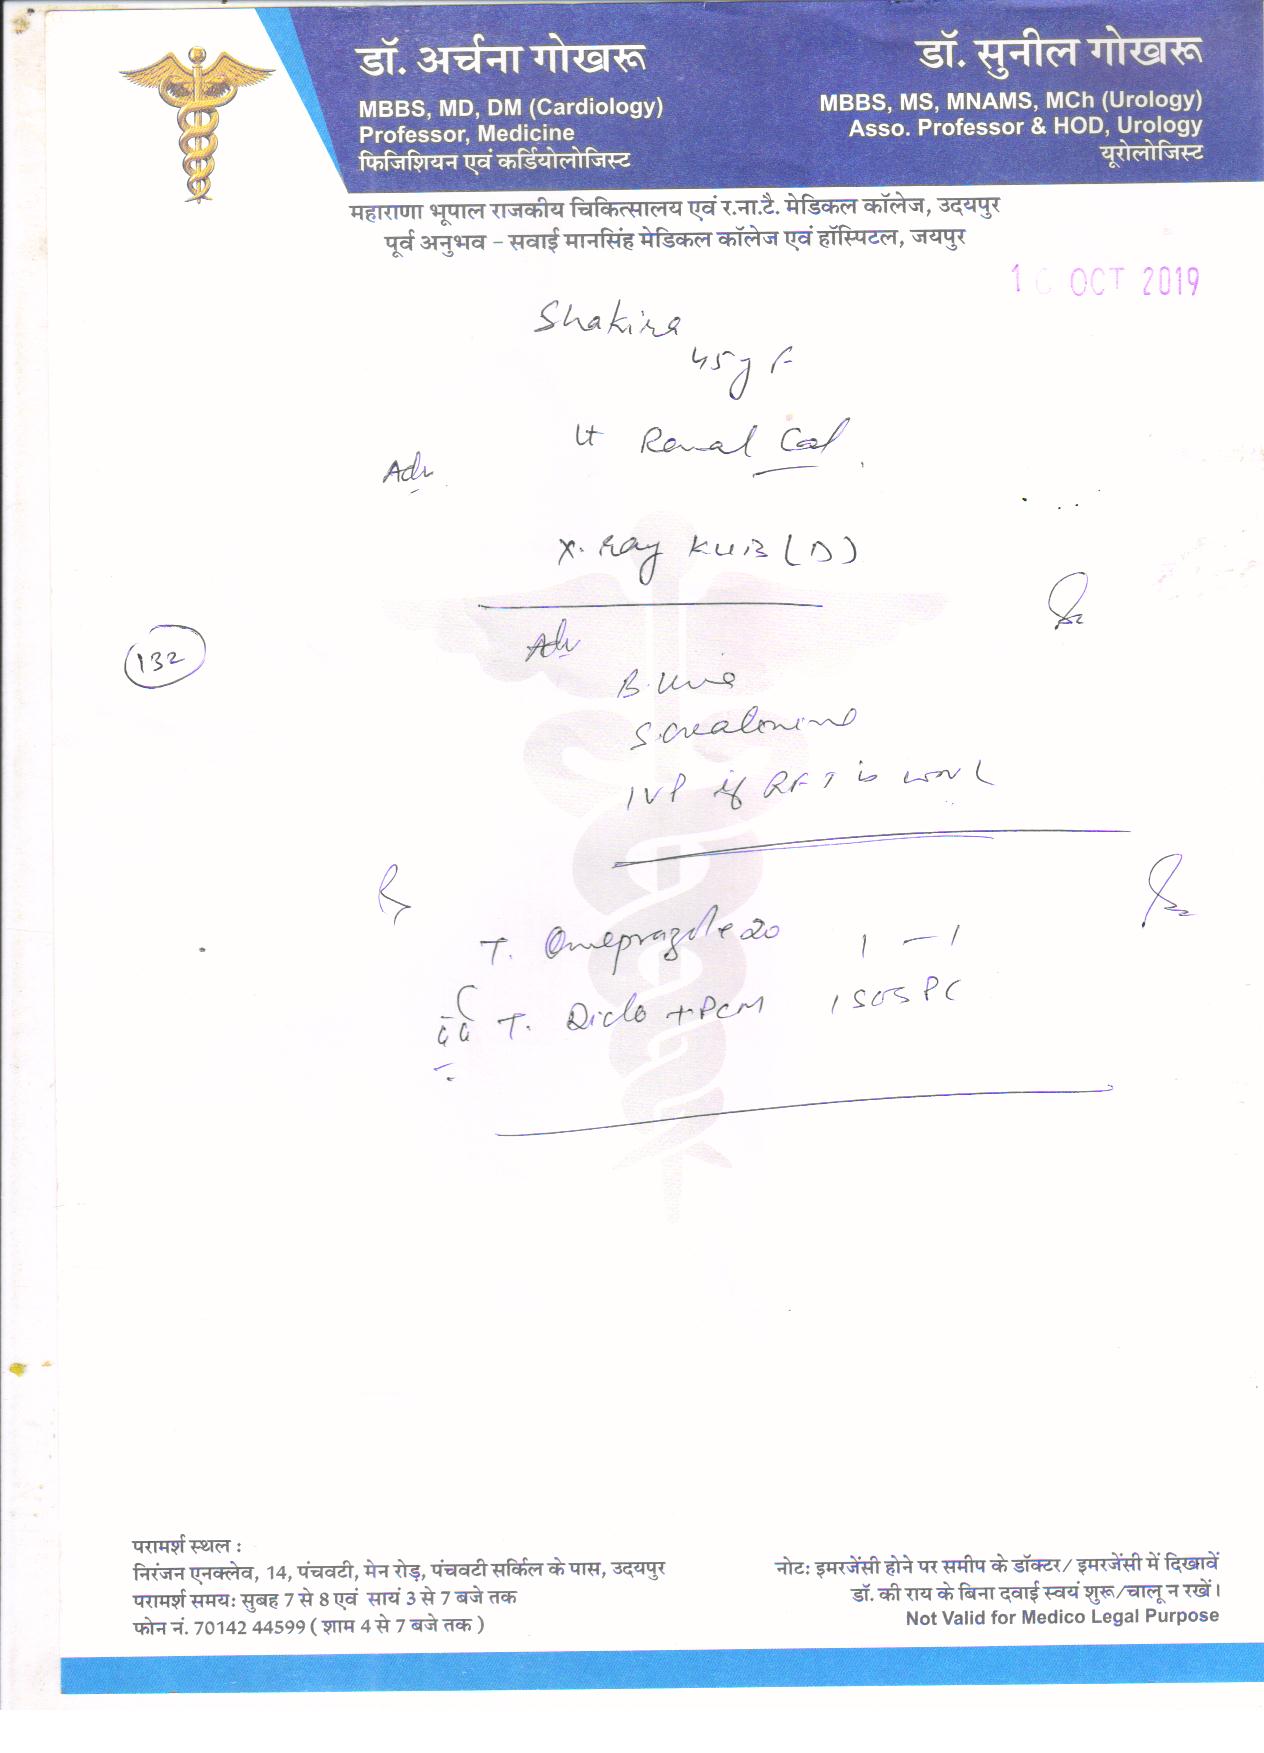 डॉ. अर्चना गोखरू
MBBS, MD, DM (Cardiology)
Professor, Medicine
फिजिशियन एवं कर्डियोलोजिस्ट
डॉ. सुनील गोखरू
MBBS, MS, MNAMS, MCh (Urology)
Asso. Professor & HOD, Urology
यूरोलोजिस्ट
महाराणा भूपाल राजकीय चिकित्सालय एवं र.ना.टै. मेडिकल कॉलेज, उदयपुर
पूर्व अनुभव – सवाई मानसिंह मेडिकल कॉलेज एवं हॉस्पिटल, जयपुर
OCT 2019
Shakira
45 y F
Lt Renal Cal
Adv
X-Ray KUB (D)
132
Adv
B. Urea
S. Creatinine
IVP if RFT is
T. Omeprazole 20 1 — 1
T. Diclo + PCM 1 SOS PC
परामर्श स्थल :
निरंजन एनक्लेव, 14, पंचवटी, मेन रोड़, पंचवटी सर्किल के पास, उदयपुर
परामर्श समय: सुबह 7 से 8 एवं सायं 3 से 7 बजे तक
फोन नं. 70142 44599 ( शाम 4 से 7 बजे तक )
नोट: इमरजेंसी होने पर समीप के डॉक्टर/ इमरजेंसी में दिखावें
डॉ. की राय के बिना दवाई स्वयं शुरू/चालू न रखें।
Not Valid for Medico Legal Purpose